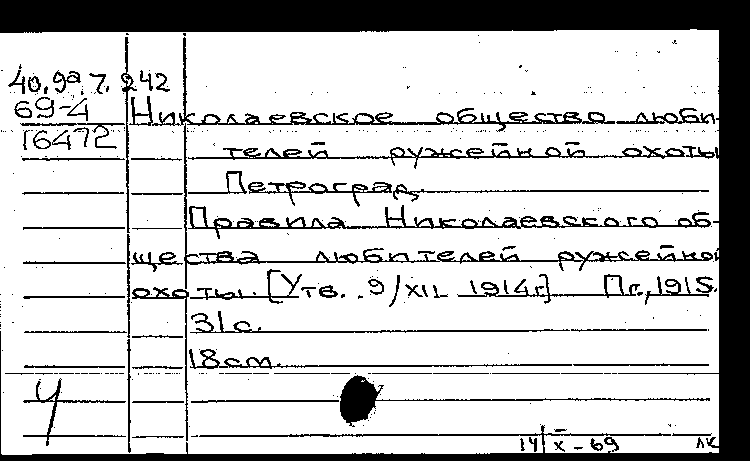 40.9а.7.242
69-4
16472
Николаевское общество люби-
телей ружейной охоты
Петроград.
Правила Николаевского об-
щества любителей ружейной
охоты. [Утв. 9/XII 1914г.] Пг., 1915.
31с.
18см.
Ч
14/X-69 ЛК